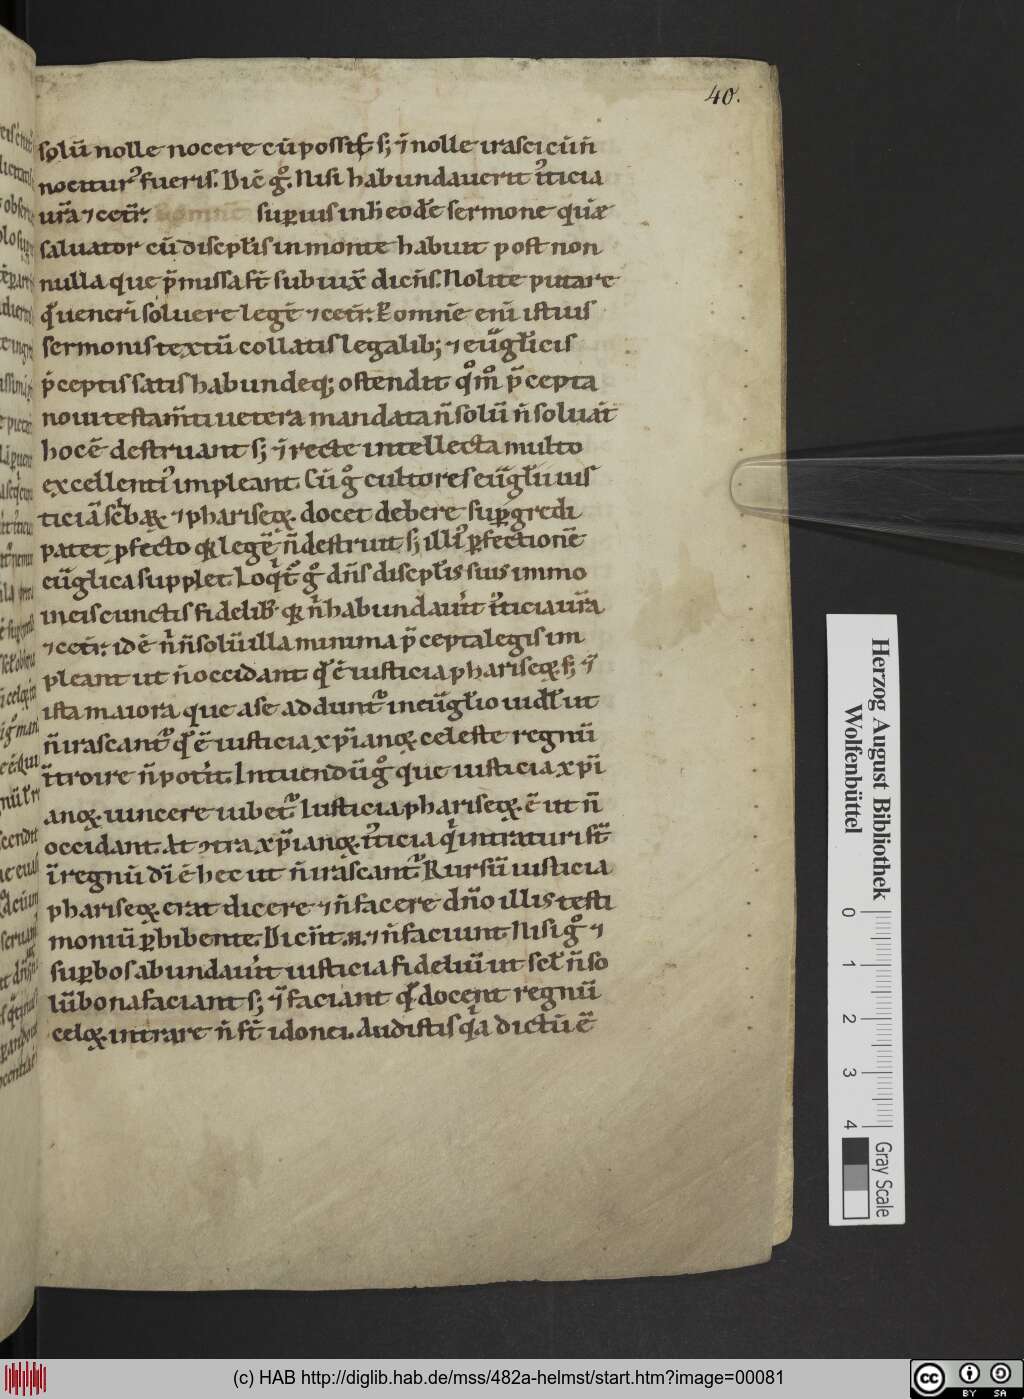 40.
solū nolle nocere cū possis s; ⁊ nolle irasci cū n̄
nociturꝰ fueris. Dic̄ gͦ. Nisi habundauerit iꝰticia
ur̄a ⁊ cetr̄. suꝑius in h̄ eodē sermone quē
saluator cū discipl̄is in monte habuit post non
nulla que p̄missa st̄ subiux̄ dicn̄s. Nolite putare
qd̄ ueneri soluere legē ⁊ cetr̄. Et omnē enī istius
sermonis textū collatis legalib; ⁊ eūgl̄icis
p̄ceptis satis habundeq; ostendit qͦmͦ p̄cepta
noui testam̄ti uetera mandata n̄ solū n̄ soluāt
hoc ē destruant s; ⁊ recte intellecta multo
excellentiꝰ impleant. Cū gͦ cultores eūgl̄ii ius
ticiā scͥbaꝝ ⁊ phariseoꝝ docet debere suꝑgredi
patet ꝓfecto qꝛ legē n̄ destruit s; illiꝰ ꝑfectionē
eūglica supplet. Loqͥtͬ gͦ dn̄s discipl̄is suis immo
in eis cunctis fidelibꝰ qꝛ nͥ habundau̓it iꝰticia ur̄a
⁊ cetr̄. id ē nͥ n̄ solū illa minima p̄cepta legis im
pleant ut n̄ occidant qd̄ ē iusticia phariseoꝝ s; ⁊
ista maiora que a se adduntͬ in eūgl̄io uidel̄ ut
n̄ irascantͬ qd̄ ē iusticia xp̄ianoꝝ celeste regnū
īntroire n̄ pot̓it. Intuendū gͦ que iusticia xp̄i
anoꝝ. uincere iubetͬ. Iusticia phariseoꝝ. ē ut n̄
occidant. At ⁊tra xp̄ianoꝝ. iꝰticia qͥ intraturi st̄
ī regnū dī ē hec ut n̄ irascantͬ. Rursū iusticia
phariseoꝝ erat dicere ⁊ n̄ facere dn̄o illis testi
moniū ꝑhibente. Dicn̄t .n. ⁊ n̄ faciunt. Nisi gͦ ⁊
suꝑ hos abundau̓it iusticia fideliū ut scl̄ n̄ so
lū bona faciant s; ⁊ faciant qd̄ docent regnū
celoꝝ. intrare n̄ st̄ idonei. Audistis qͥa dictū ē
Herzog August Bibliothek
Wolfenbüttel
0 1 2 3 4
Gray Scale
(c) HAB http://diglib.hab.de/mss/482a-helmst/start.htm?image=00081
cc BY SA